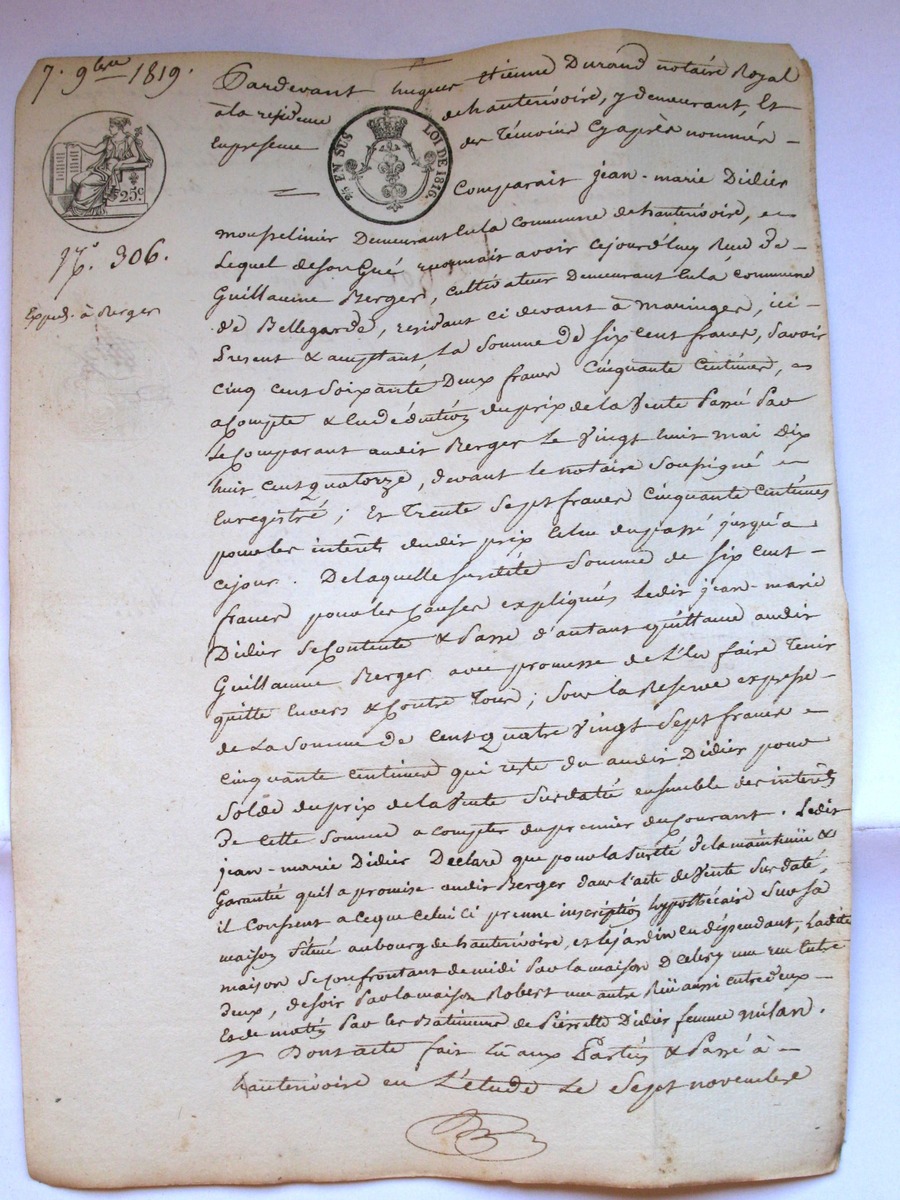 7. 9bre 1819.
25c.
N.° 306.
Expéd. à Berger
EN SUS LOI DE 1816.
Pardevant hugues Etienne Durand notaire Royal
à la residence de hauterivoire, y demeurant, Et
En presence des Témoins Cy après nommés -
Comparait jean-marie Didier
mousselinier Demeurant En la Commune de hauterivoire,
Lequel de son Gré reconnait avoir cejourd'huy Reçu de
Guillaume Berger, Cultivateur demeurant En la Commune
de Bellegarde, residant ci devant à maringes, ici
Present & acceptant, La Somme de Six Cent francs, Savoir
Cinq Cent Soixante Deux francs Cinquante Centimes,
a Compte & En déduction du prix de la Vente Passé Par
Le Comparant audit Berger Le Vingt huit mai Dix
huit Cent quatorze, devant le notaire Soussigné
Enregistré; Et Trente Sept francs Cinquante Centimes
pour les intérêts dudit prix Echu du passé jusqu'a
Cejour. De laquelle Susdite Somme de Six Cent -
francs pour les Causes expliquées Ledit jean-marie
Didier Se Contente & Passe d'autant quittance audit
Guillaume Berger avec promesse de L'En faire Tenir
quitte Envers & Contre Tous; Sous la Reserve expresse -
de La Somme de Cent Quatre Vingt Sept francs
Cinquante Centimes qui reste du audit Didier pour
Solde du prix de la Vente Susdatée ensemble des intérêts
de Cette Somme a Compter du premier du Courant. Ledit
jean-marie Didier Declare que pour la Sureté de la maintenüe &
Garantie qu'il a promise audit Berger dans l'acte de Vente Susdaté,
il Consent a Ceque Celui Ci prenne inscription hypothécaire Sur Sa
maison Située au bourg de hauterivoire, et le jardin En dépendant, Ladite
maison Se Confrontant de midi Par la maison une rue Entre
deux, de Soir Par la maison Robert une autre Rüe aussi entre deux -
Et de matin Par les Batimens de Pierrette Didier femme Milan.
Dont acte fait Lu aux Parties & Passé à -
hauterivoire en L'etude Le Sept novembre